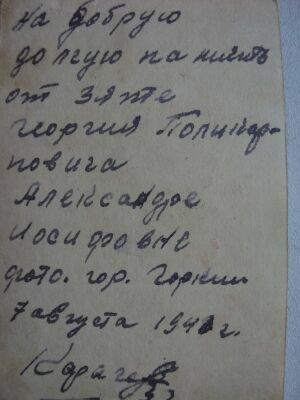 на добрую
долгую память
от Зятя
Георгия Поликар-
повича
Александре
Иосифовне
фото. гор. Горкий
7 августа 1941 г.